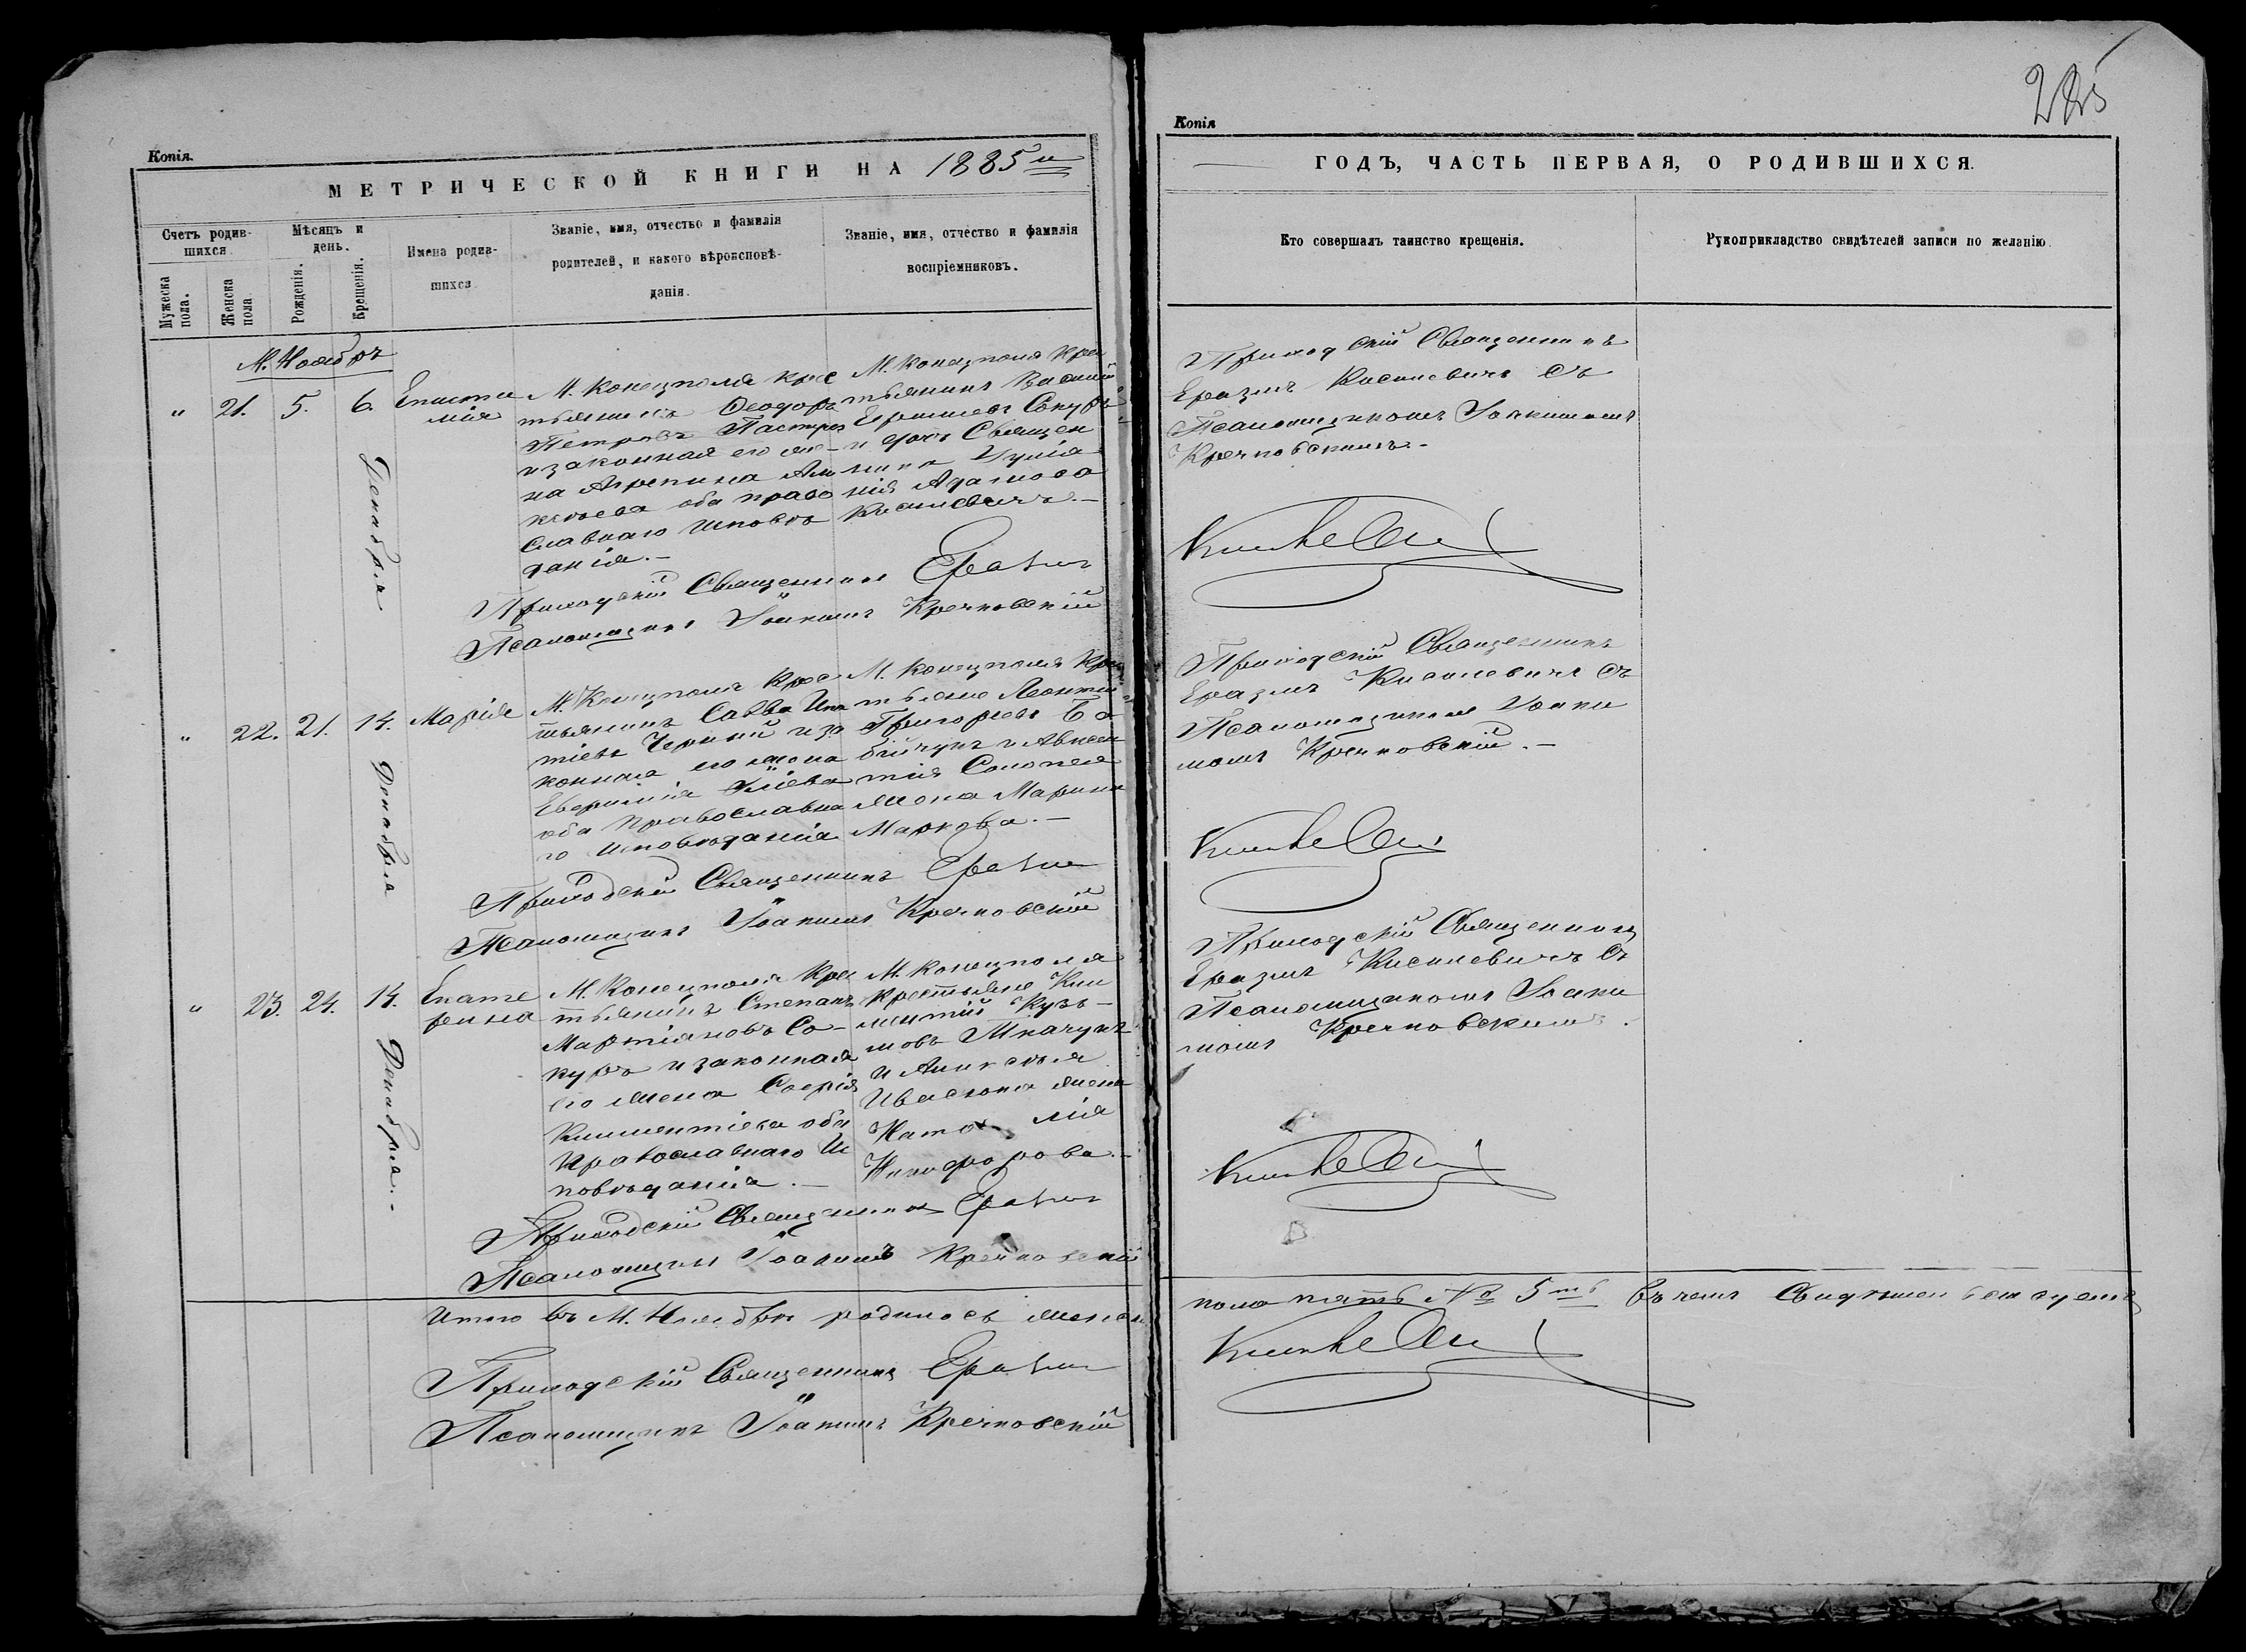 225
Копія.
МЕТРИЧЕСКОЙ КНИГИ НА 1885 й
Счетъ родив-
шихся
Мужеска
пола.
Женска
пола
Мѣсяцъ и
день.
Рожденія.
Крещенія.
Имена родив-
шихся
Званіе, имя, отчество и фамилія
родителей, и какого вѣроисповѣ-
данія.
Званіе, имя, отчество и фамилія
воспріемниковъ.
М. Ноябръ
" 21. 5. 6. Декабря
М. Конецполя крес
тьянинъ Ѳеодоръ
Петровъ
и законная его же-
на Агрепина
оба право
славнаго исповѣ
данія.-
М. Конецполя крес
тьянинъ Василій
Сокуръ
и дочь Священ
ника
Адамова
Кисилевичъ.-
Приходскій Священникъ Еразмъ
Псаломщикъ Іоакимъ Кречковскій
" 22. 21. 14. Декабря
Марія
М. Конецполя крес
тьянинъ Савва Игна
тіевъ Черный и за
конная его жена
оба Православна
го исповѣданія
М. Конецполя крес
тьяне Леонтій
Григорьевъ
жена Марина
Маркова.-
Приходскій Священникъ Еразмъ
Псаломщикъ Іоакимъ Кречковскій
" 23. 24. 14. Декабря.-
Екате
рина
М. Конецполя крес
тьянинъ Степанъ
Мартіановъ Со-
куръ и законная
его жена Софія
Климентіева оба
Православнаго Ис
повѣданія.-
М. Конецполя
крестьяне Кли
ментій Кузь-
мовъ Ткачукъ
и
жена
Никифорова.-
Приходскій Священникъ Еразмъ
Псаломщикъ Іоакимъ Кречковскій
Итого въ М. Ноябрѣ родилось женск
Приходскій Священникъ Еразмъ
Псаломщикъ Іоакимъ Кречковскій
Копія
ГОДЪ, ЧАСТЬ ПЕРВАЯ, О РОДИВШИХСЯ.
Кто совершалъ таинство крещенія.
Рукоприкладство свидѣтелей записи по желанію
Приходскій Священникъ
Еразмъ Кисилевичъ съ
Псаломщикомъ Іоакимомъ
Кречковскимъ.-
Приходскій Священникъ
Еразмъ Кисилевичъ съ
Псаломщикомъ Іоаки
момъ Кречковскій.-
Приходскій Священникъ
Еразмъ Кисилевичъ съ
Псаломщикомъ Іоаки
момъ Кречковскимъ.
пола пять № 5ть въ чемъ Свидѣтельствуемъ